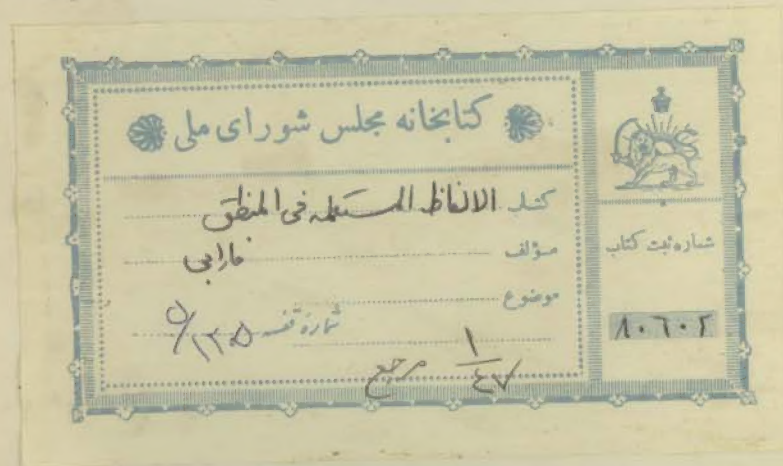 کتابخانه مجلس شورای ملی
کتاب الالفاظ المستعمله فی المنطق
مؤلف فارابی
موضوع
شماره قفسه
۱
۴۷
مرجع
شماره ثبت کتاب
۸۰۶۰۲